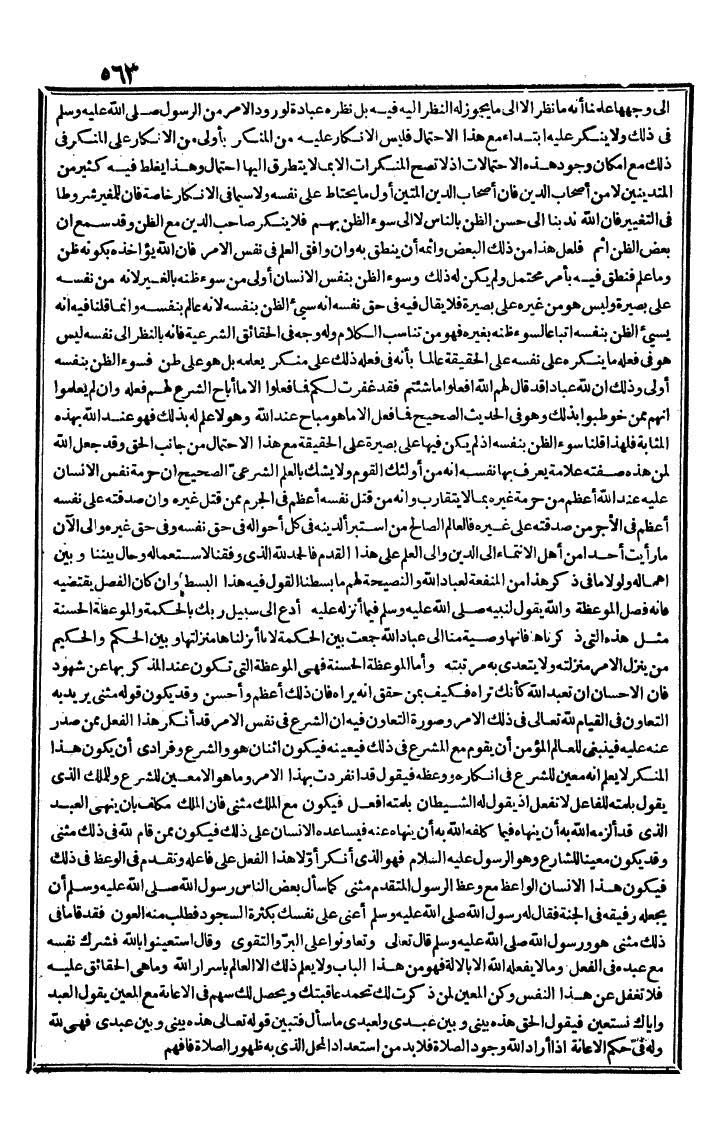 ٥٦٣
الى وجهها علمنا أنه ما نظر الا الى ما يجوز له النظر اليه فيه بل نظره عبادة لورود الامر من الرسول صلى الله عليه وسلم
فى ذلك ولا ينكر عليه ابتداء مع هذا الاحتمال فليس الانكار عليه من المنكر بأولى من الانكار على المنكر فى
ذلك مع امكان وجود هذه الاحتمالات اذ لا تصح المنكرات الا بما لا يتطرق اليها احتمال وهذا يغلط فيه كثير من
المتدينين لا من أصحاب الدين فان أصحاب الدين المتين أول ما يحتاط على نفسه ولا سيما فى الانكار خاصة فان للمغير شروطا
فى التغيير فان الله ندبنا الى حسن الظن بالناس لا الى سوء الظن بهم فلا ينكر صاحب الدين مع الظن وقد سمع ان
بعض الظن اثم فلعل هذا من ذلك البعض واثمه أن ينطق به وان وافق العلم فى نفس الامر فان الله يؤاخذه بكونه ظن
وما علم فنطق فيه بأمر محتمل ولم يكن له ذلك وسوء الظن بنفس الانسان أولى من سوء ظنه بالغير لانه من نفسه
على بصيرة وليس هو من غيره على بصيرة فلا يقال فيه فى حق نفسه انه سيئ الظن بنفسه لانه عالم بنفسه وانما قلنا فيه انه
يسيئ الظن بنفسه اتباعا لسوء ظنه بغيره فهو من تناسب الكلام وله وجه فى الحقائق الشرعية فانه بالنظر الى نفسه ليس
هو فى فعله ما ينكره على نفسه على الحقيقة عالما بأنه فى فعله ذلك على منكر يعلمه بل هو على ظن فسوء الظن بنفسه
أولى وذلك ان لله عبادا قد قال لهم الله افعلوا ما شئتم فقد غفرت لكم فما فعلوا الا ما أباح الشرع لهم فعله وان لم يعلموا
انهم ممن خوطبوا بذلك وهو فى الحديث الصحيح فما فعل الا ما هو مباح عند الله وهو لا علم له بذلك فهو عند الله بهذه
المثابة فلهذا قلنا سوء الظن بنفسه اذ لم يكن فيها على بصيرة على الحقيقة مع هذا الاحتمال من جانب الحق وقد جعل الله
لمن هذه صفته علامة يعرف بها نفسه انه من أولئك القوم ولا يشك بالعلم الشرعىّ الصحيح ان حرمة نفس الانسان
عليه عند الله أعظم من حرمة غيره بما لا يتقارب وانه من قتل نفسه أعظم فى الجرم ممن قتل غيره وان صدقته على نفسه
أعظم فى الأجر من صدقته على غيره فالعالم الصالح من استبرأ لدينه فى كل أحواله فى حق نفسه وفى حق غيره والى الآن
ما رأيت أحدا من أهل الانتماء الى الدين والى العلم على هذا القدم فالحمد لله الذى وفقنا لاستعماله وحال بيننا و بين
اهماله ولولا ما فى ذكر هذا من المنفعة لعباد الله والنصيحة لهم ما بسطنا القول فيه هذا البسط وان كان الفصل يقتضيه
فانه فصل الموعظة والله يقول لنبيه صلى الله عليه وسلم فيما أنزله عليه أدع الى سبيل ربك بالحكمة والموعظة الحسنة
مثل هذه التى ذكرناها فانها وصية منا الى عباد الله جمعت بين الحكمة لا ما أنزلناها منزلتها و بين الحكم والحكيم
من ينزل الامر منزلته ولا يتعدى به مرتبته وأما الموعظة الحسنة فهى الموعظة التى تكون عند المذكر بها عن شهود
فان الاحسان ان تعبد الله كأنك تراه فكيف بمن حقق انه يراه فان ذلك أعظم وأحسن وقد يكون قوله مثنى يريد به
التعاون فى القيام لله تعالى فى ذلك الامر وصورة التعاون فيه ان الشرع فى نفس الامر قد أنكر هذا الفعل ممن صدر
عنه عليه فينبغى للعالم المؤمن أن يقوم مع المشرع فى ذلك فيعينه فيكون اثنان هو والشرع وفرادى أن يكون هذا
المنكر لا يعلم انه معين للشرع فى انكاره ووعظه فيقول قد انفردت بهذا الامر وما هو الا معين للشرع وللملك الذى
يقول بلمته للفاعل لا تفعل اذ يقول له الشيطان بلمته افعل فيكون مع الملك مثنى فان الملك مكلف بان ينهى العبد
الذى قد ألزمه الله به أن ينهاه فيما كلفه الله به أن ينهاه عنه فيساعده الانسان على ذلك فيكون ممن قام لله فى ذلك مثنى
وقد يكون معينا للشارع وهو الرسول عليه السلام فهو الذى أنكر أوّلا هذا الفعل على فاعله وتقدم فى الوعظ فى ذلك
فيكون هذا الانسان الواعظ مع وعظ الرسول المتقدم مثنى كما سأل بعض الناس رسول الله صلى الله عليه وسلم أن
يجعله رفيقه فى الجنة فقال له رسول الله صلى الله عليه وسلم أعنى على نفسك بكثرة السجود فطلب منه العون فقد قاما فى
ذلك مثنى هو ورسول الله صلى الله عليه وسلم قال تعالى وتعاونوا على البرّ والتقوى وقال استعينوا بالله فشرك نفسه
مع عبده فى الفعل وما لا يفعله الله الا بالآلة فهو من هذا الباب ولا يعلم ذلك الا العالم باسرار الله وما هى الحقائق عليه
فلا تغفل عن هذا النفس وكن المعين لمن ذكرت لك تحمد عاقبتك و يحصل لك سهم فى الاعانة مع المعين يقول العبد
واياك نستعين فيقول الحق هذه بينى و بين عبدى ولعبدى ما سأل فتبين قوله تعالى هذه بينى و بين عبدى فهى لله
وله فى حكم الاعانة اذا أراد الله وجود الصلاة فلا بد من استعداد المحل الذى به ظهور الصلاة فافهم